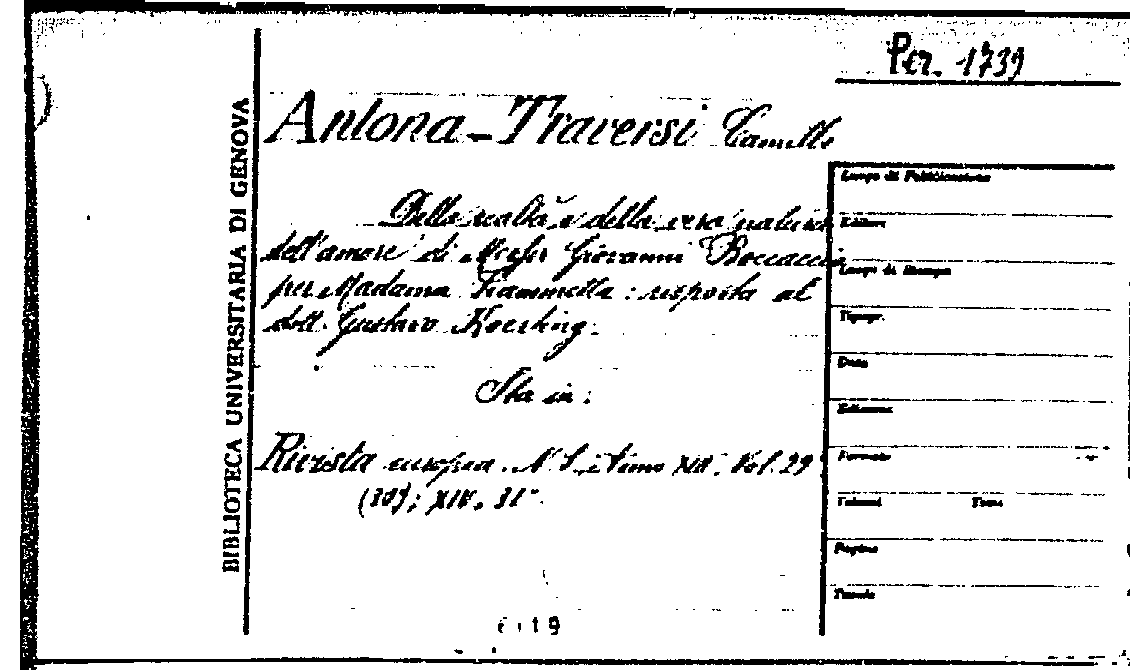 Per. 1739
BIBLIOTECA UNIVERSITARIA DI GENOVA
Antona-Traversi Camillo
Della realtà e della vera natura
dell'amore di Messer Giovanni Boccaccio
per Madama Fiammetta: risposta al
dott. Gustavo Koerting.
Sta in:
Rivista europea. N. S. Anno XIII. Vol. 29
(30); XIV, 31°.
Luogo di Pubblicazione
Editore
Luogo di Stampa
Tipogr.
Data
Edizione
Formato
Volumi Tomi
Pagine
Tavole